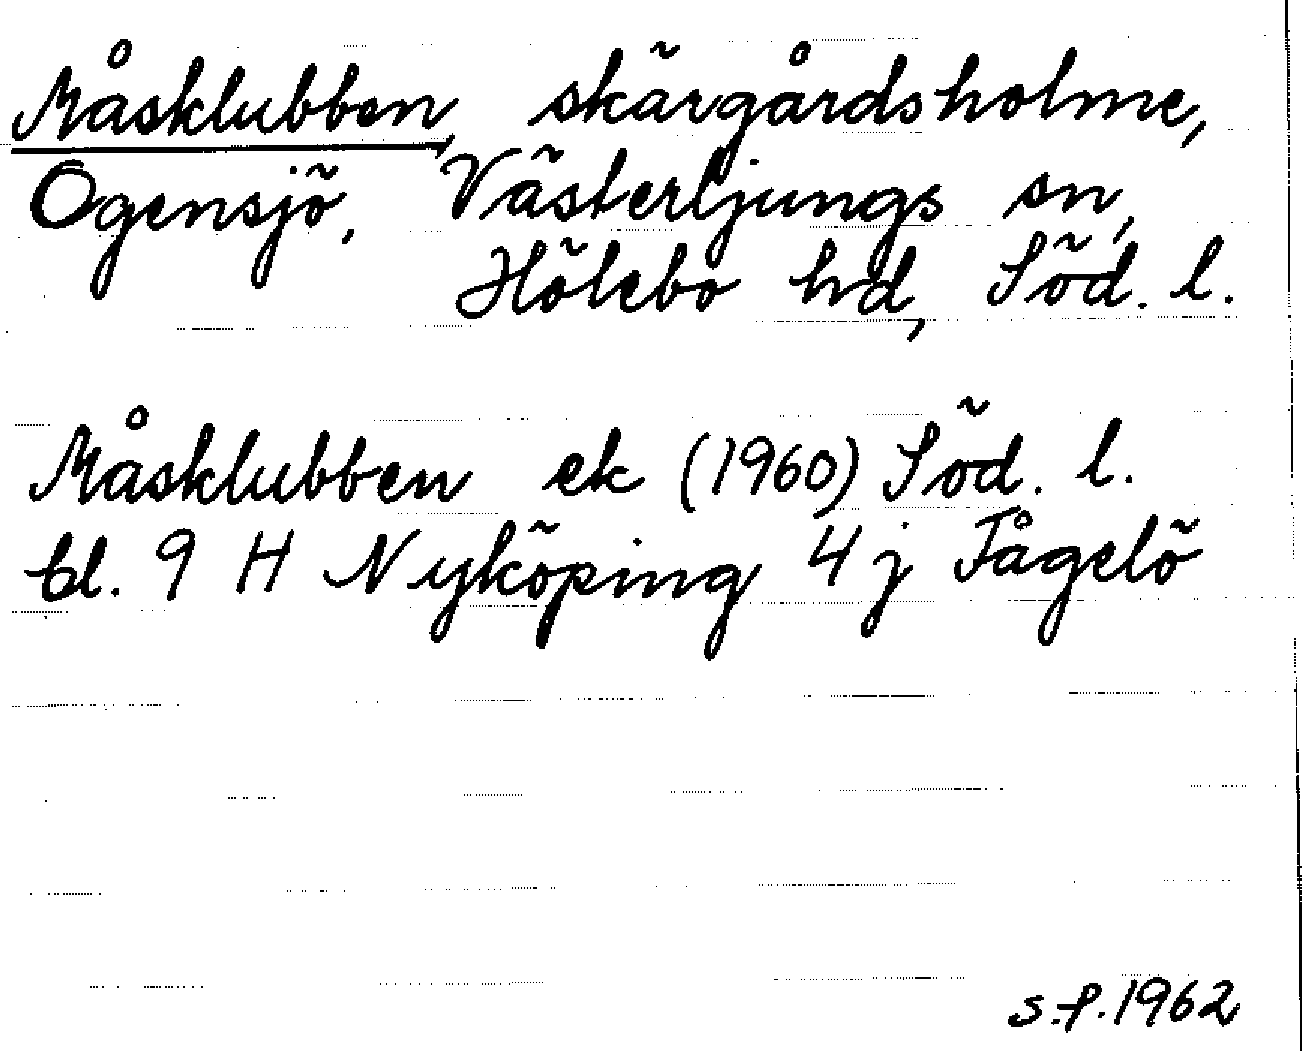 Måsklubben, skärgårdsholme,
Ogensjö, Västerljungs sn,
Hölebo hd, Söd. l.
Måsklubben ek (1960) Söd. l.
bl. 9 H Nyköping 4 j Fågelö
s.f. 1962